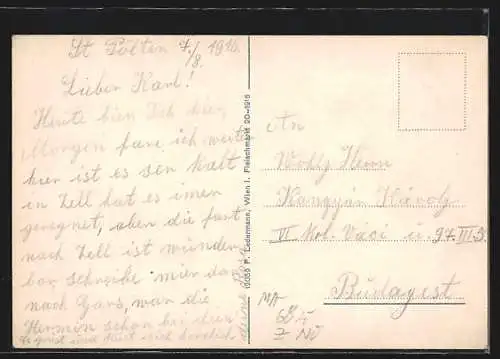 St Pölten 7/8. 1916.
Lieber Karl!
Heute bien Ich hier
Morgen fare ich weiter
hier ist es sen Kalt
in Zell hat es imer
geregnet, aber die fart
nach Zell ist wunder
bar schreibe mier dan
nach Gars, wan die
Hermin schon bei dir
es grüst und küst dich herzlich
deine
10059 P. Ledermann, Wien I. Fleischmarkt 20-1915
An
Wohlg Herrn
Kangyán Károly
VI Krl. Váci u. 97. III 3.
Budapest